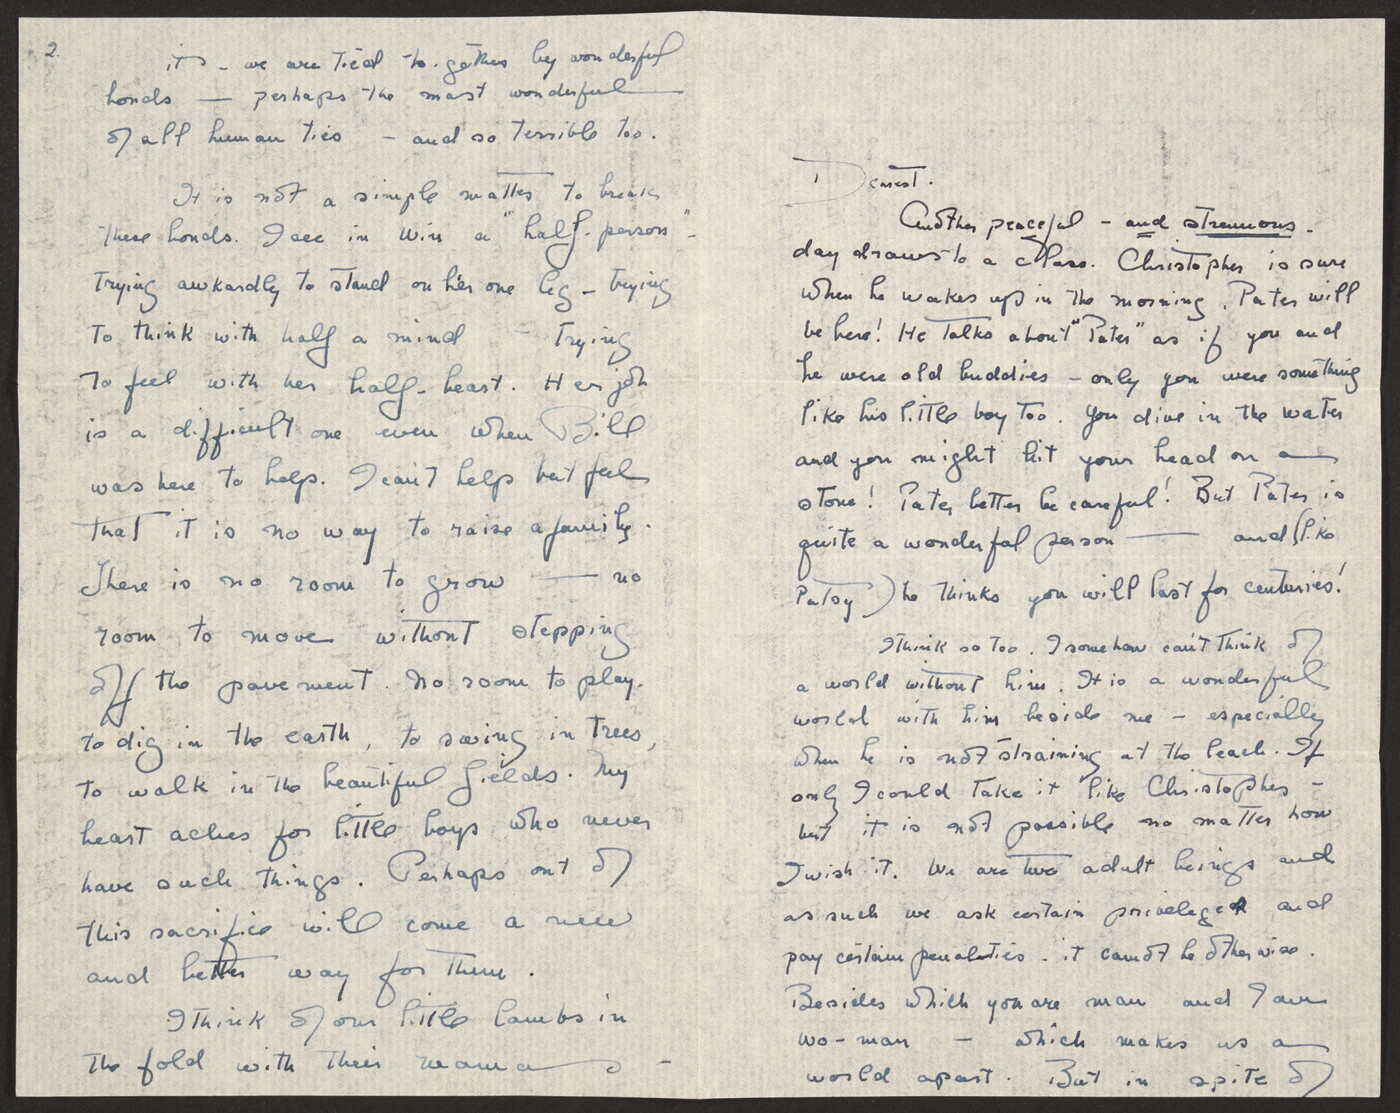 Dearest.
Another peaceful - and strenuous -
day draws to a close. Christopher is sure
when he wakes up in the morning, Pater will
be here! He talks about "Pater" as if you and
he were old buddies - only you were something
like his little boy too. You dive in the water
and you might hit your head on a
stone! Pater better be careful! But Pater is
quite a wonderful person — and (like
Patsy) he thinks you will last for centuries!
I think so too. I somehow can't think of
a world without him. It is a wonderful
world with him beside me - especially
when he is not straining at the leash. If
only I could take it like Christopher -
but it is not possible no matter how
I wish it. We are two adult beings and
as such we ask certain priveleges and
pay certain penalties - it cannot be otherwise.
Besides which you are man and I am
wo-man - which makes us a
world apart. But in spite of
2.
it - we are tied to-gether by wonderful
bonds — perhaps the most wonderful
of all human ties - and so terrible too.
It is not a simple matter to break
these bonds. I see in Win a "half-person" -
trying awkardly to stand on her one leg - trying
to think with half a mind - trying
to feel with her half-heart. Her job
is a difficult one even when Bill
was here to help. I can't help but feel
that it is no way to raise a family.
There is no room to grow — no
room to move without stepping
off the pavement. No room to play.
to dig in the earth, to swing in trees,
to walk in the beautiful fields. My
heart aches for little boys who never
have such things. Perhaps out of
this sacrifice will come a new
and better way for them.
I think of our little lambs in
the fold with their mama -